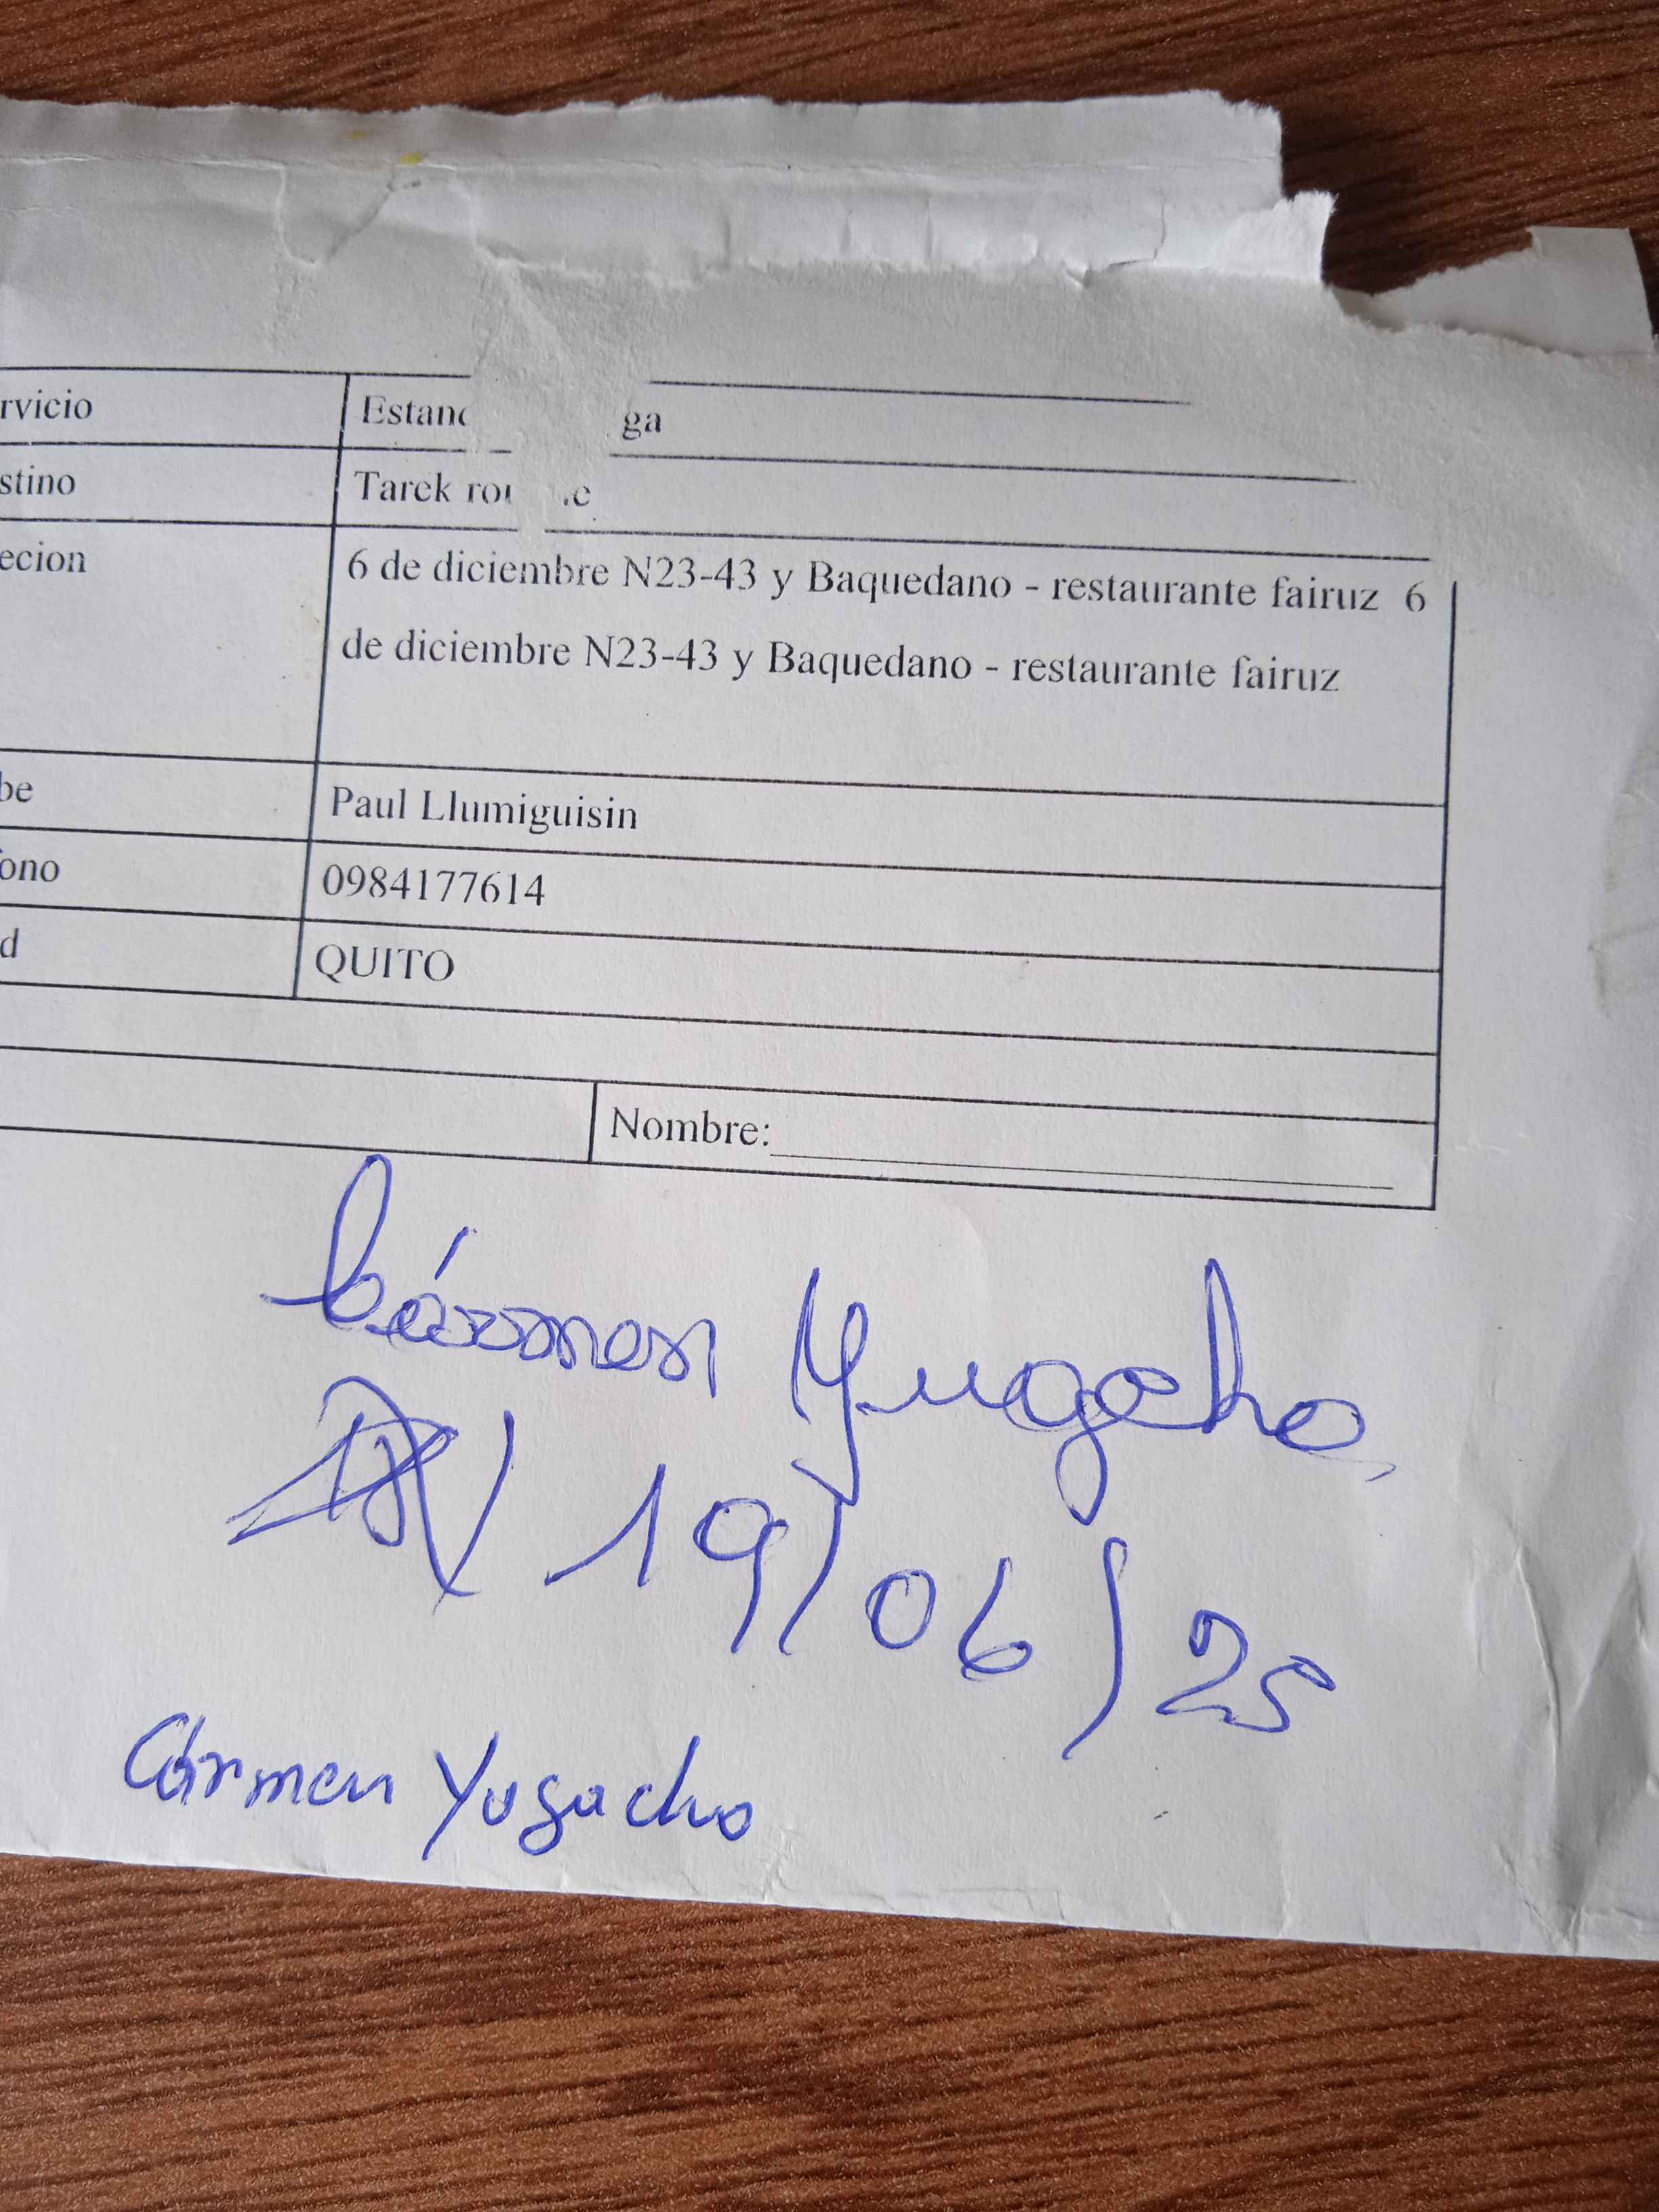 rvicio Estand ga
stino Tarek rou .e
ecion 6 de diciembre N23-43 y Baquedano - restaurante fairuz 6
de diciembre N23-43 y Baquedano - restaurante fairuz
be Paul Llumiguisin
fono 0984177614
d QUITO
Nombre:
Cármen Yugcho
19/06/25
Cármen Yugacho